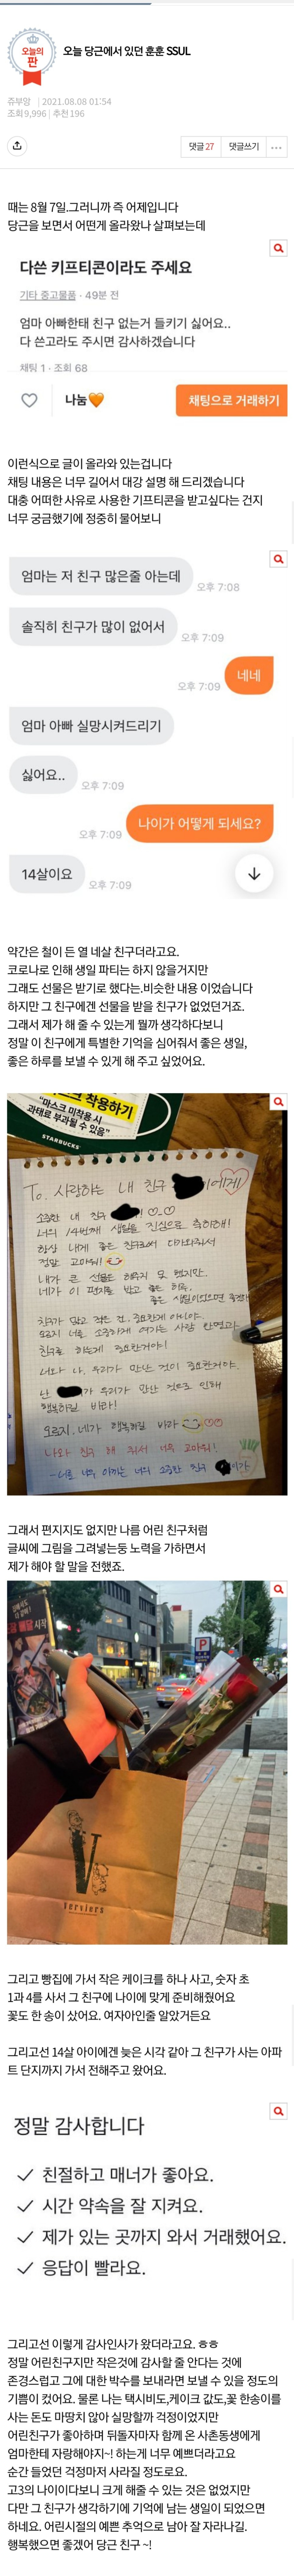 오늘의
판
오늘 당근에서 있던 훈훈 SSUL
쥬부앙 | 2021.08.08 01:54
조회 9,996 | 추천 196
댓글 27
댓글쓰기
때는 8월 7일.그러니까 즉 어제입니다
당근을 보면서 어떤게 올라왔나 살펴보는데
다쓴 키프티콘이라도 주세요
기타 중고물품 · 49분 전
엄마 아빠한태 친구 없는거 들키기 싫어요..
다 쓴고라도 주시면 감사하겠습니다
채팅 1 · 조회 68
나눔🧡
채팅으로 거래하기
이런식으로 글이 올라와 있는겁니다
채팅 내용은 너무 길어서 대강 설명 해 드리겠습니다
대충 어떠한 사유로 사용한 기프티콘을 받고싶다는 건지
너무 궁금했기에 정중히 물어보니
엄마는 저 친구 많은줄 아는데
오후 7:08
솔직히 친구가 많이 없어서
오후 7:09
네네
오후 7:09
엄마 아빠 실망시켜드리기
싫어요..
오후 7:09
나이가 어떻게 되세요?
오후 7:09
14살이요
오후 7:09
약간은 철이 든 열 네살 친구더라고요.
코로나로 인해 생일 파티는 하지 않을거지만
그래도 선물은 받기로 했다는.비슷한 내용 이었습니다
하지만 그 친구에겐 선물을 받을 친구가 없었던거죠.
그래서 제가 해 줄 수 있는게 뭘까 생각하다보니
정말 이 친구에게 특별한 기억을 심어줘서 좋은 생일,
좋은 하루를 보낼 수 있게 해 주고 싶었어요.
착용하기
"마스크 미착용 시
과태료 부과될 수 있음"
STARBUCKS
To. 사랑하는 내 친구 에게!
소중한 내 친구 !
너의 14번째 생일을 진심으로 축하해!
항상 내게 좋은 친구로서 다가와줘서
정말 고마워!
내가 큰 선물은 해주지 못 했지만,
네가 이 편지를 받고 좋은 하루,
좋은 생일이었으면 좋겠다
친구가 많고 적은 건 중요한게 아니야.
너를 소중하게 여기는 사람 한명이라
하루는 특별하게 중요한거야!
너와 나 우리가 만난 것이 중요한거야.
난 가 우리가 만난 것으로 인해
행복하길 바라!
오로지 네가 행복하길 바라
나와 친구 해 줘서 너무 고마워!
-너를 너무 아끼는 너의 소중한 친구 가-
그래서 편지지도 없지만 나름 어린 친구처럼
글씨에 그림을 그려넣는둥 노력을 가하면서
제가 해야 할 말을 전했죠.
배달 시작
P
V
serviers
그리고 빵집에 가서 작은 케이크를 하나 사고, 숫자 초
1과 4를 사서 그 친구에 나이에 맞게 준비해줬어요
꽃도 한 송이 샀어요. 여자아인줄 알았거든요
그리고선 14살 아이에겐 늦은 시각 같아 그 친구가 사는 아파
트 단지까지 가서 전해주고 왔어요.
정말 감사합니다
✓ 친절하고 매너가 좋아요.
✓ 시간 약속을 잘 지켜요.
✓ 제가 있는 곳까지 와서 거래했어요.
✓ 응답이 빨라요.
그리고선 이렇게 감사인사가 왔더라고요. ㅎㅎ
정말 어린친구지만 작은것에 감사할 줄 안다는 것에
존경스럽고 그에 대한 박수를 보내라면 보낼 수 있을 정도의
기쁨이 컸어요. 물론 나는 택시비도,케이크 값도,꽃 한송이를
사는 돈도 마땅치 않아 실망할까 걱정이었지만
어린친구가 좋아하며 뒤돌자마자 함께 온 사촌동생에게
엄마한테 자랑해야지~! 하는게 너무 예쁘더라고요
순간 들었던 걱정마저 사라질 정도로요.
고3의 나이이다보니 크게 해줄 수 있는 것은 없었지만
다만 그 친구가 생각하기에 기억에 남는 생일이 되었으면
하네요. 어린시절의 예쁜 추억으로 남아 잘 자라나길.
행복했으면 좋겠어 당근 친구 ~!